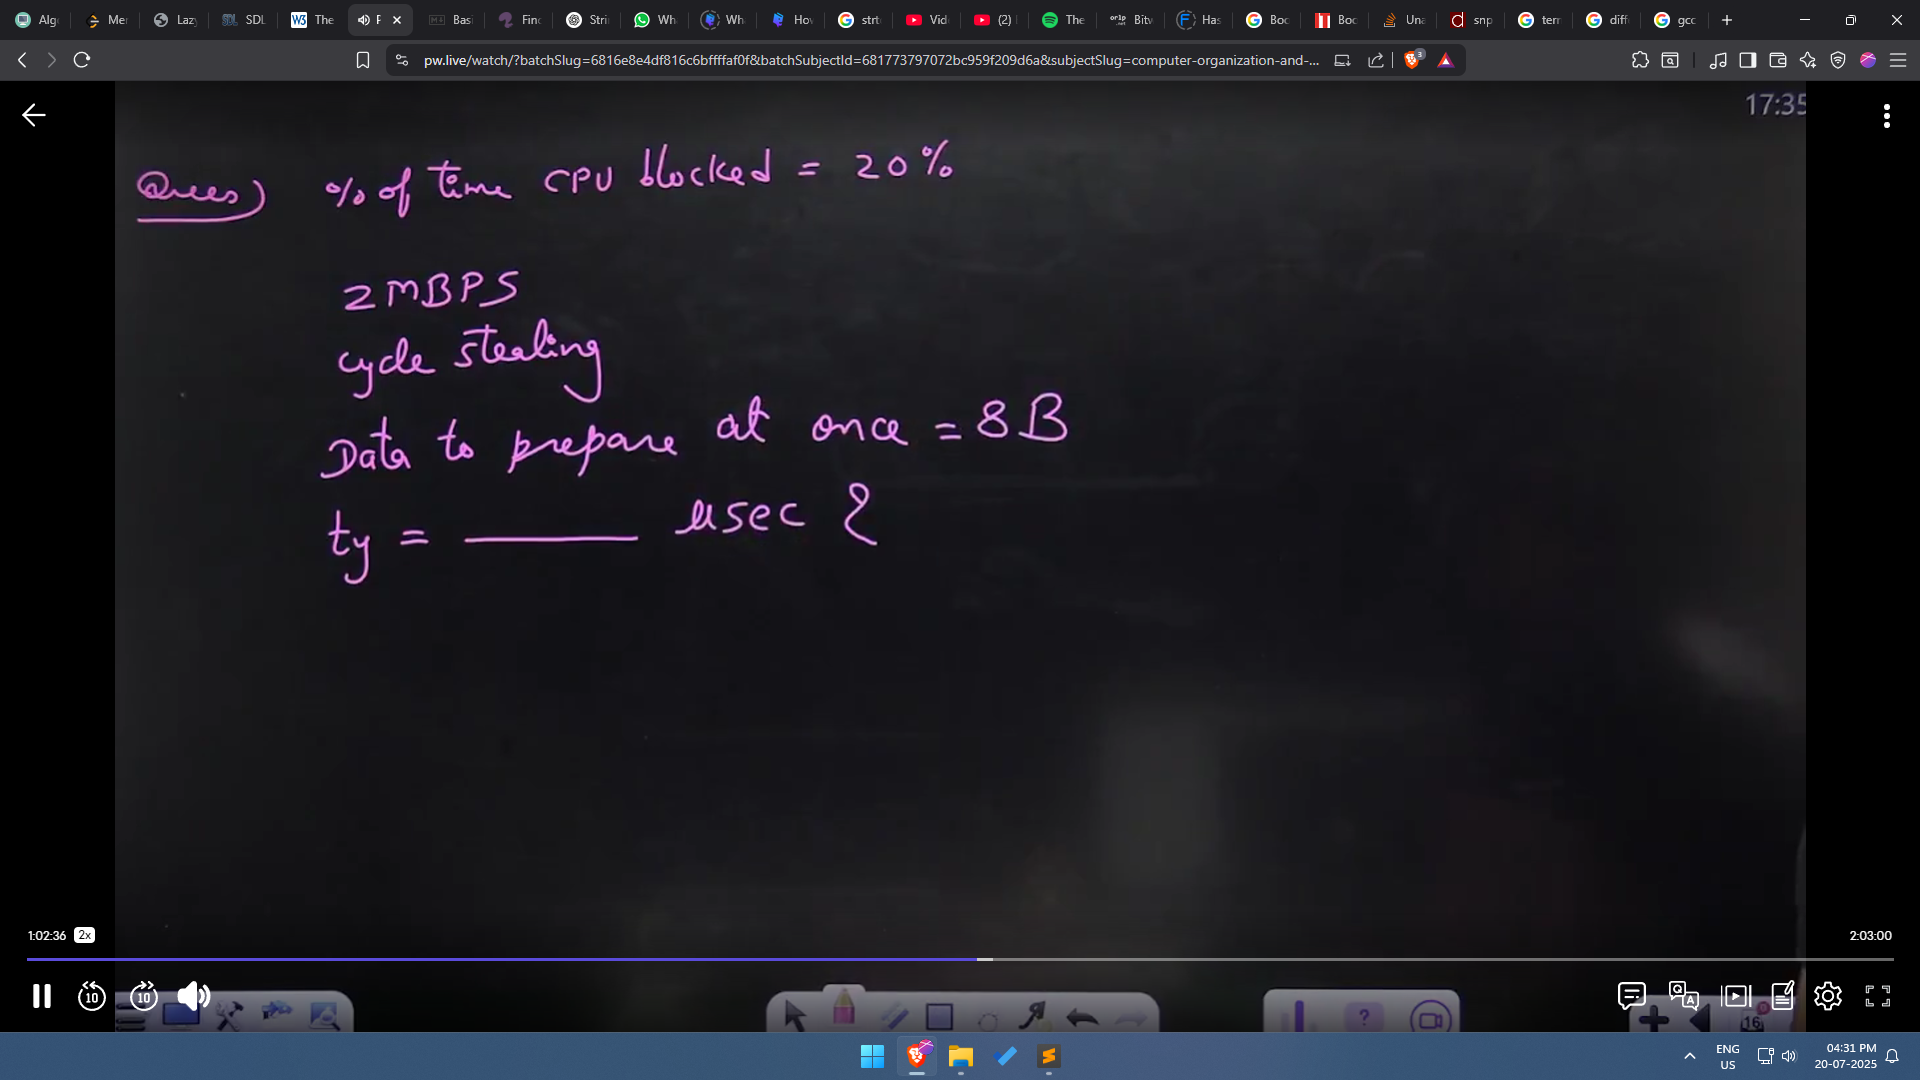 Alg
Mer
Lazy
SDL
W3 The
P
Basi
Finc
Stri
Wha
Wh
How
strt
Vid
(2)
The
or1p .net Bitw
Has
Boo
Boo
Una
snp
terr
diff
gcc
pw.live/watch/?batchSlug=6816e8e4df816c6bffffaf0f&batchSubjectId=681773797072bc959f209d6a&subjectSlug=computer-organization-and-...
3
17:35
Ques) % of time CPU blocked = 20%
2 MBPS
cycle stealing
Data to prepare at once = 8 B
ty = ______ μsec {
1:02:36 2x
2:03:00
10 10
Q A
?
16
ENG
US
04:31 PM
20-07-2025